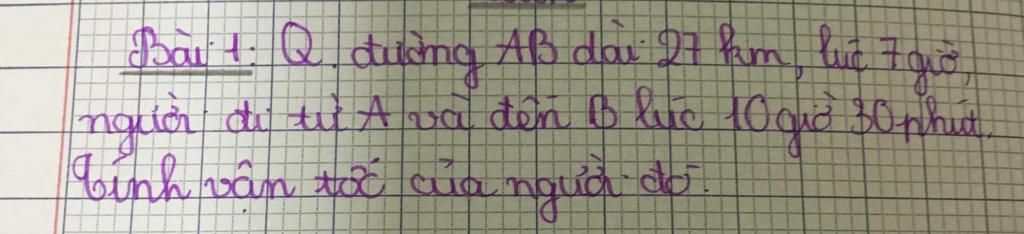 Bài 1: Q. đường AB dài 27 km, lúc 7 giờ,
người đi từ A và đến B lúc 10 giờ 30 phút.
Tính vận tốc của người đó.